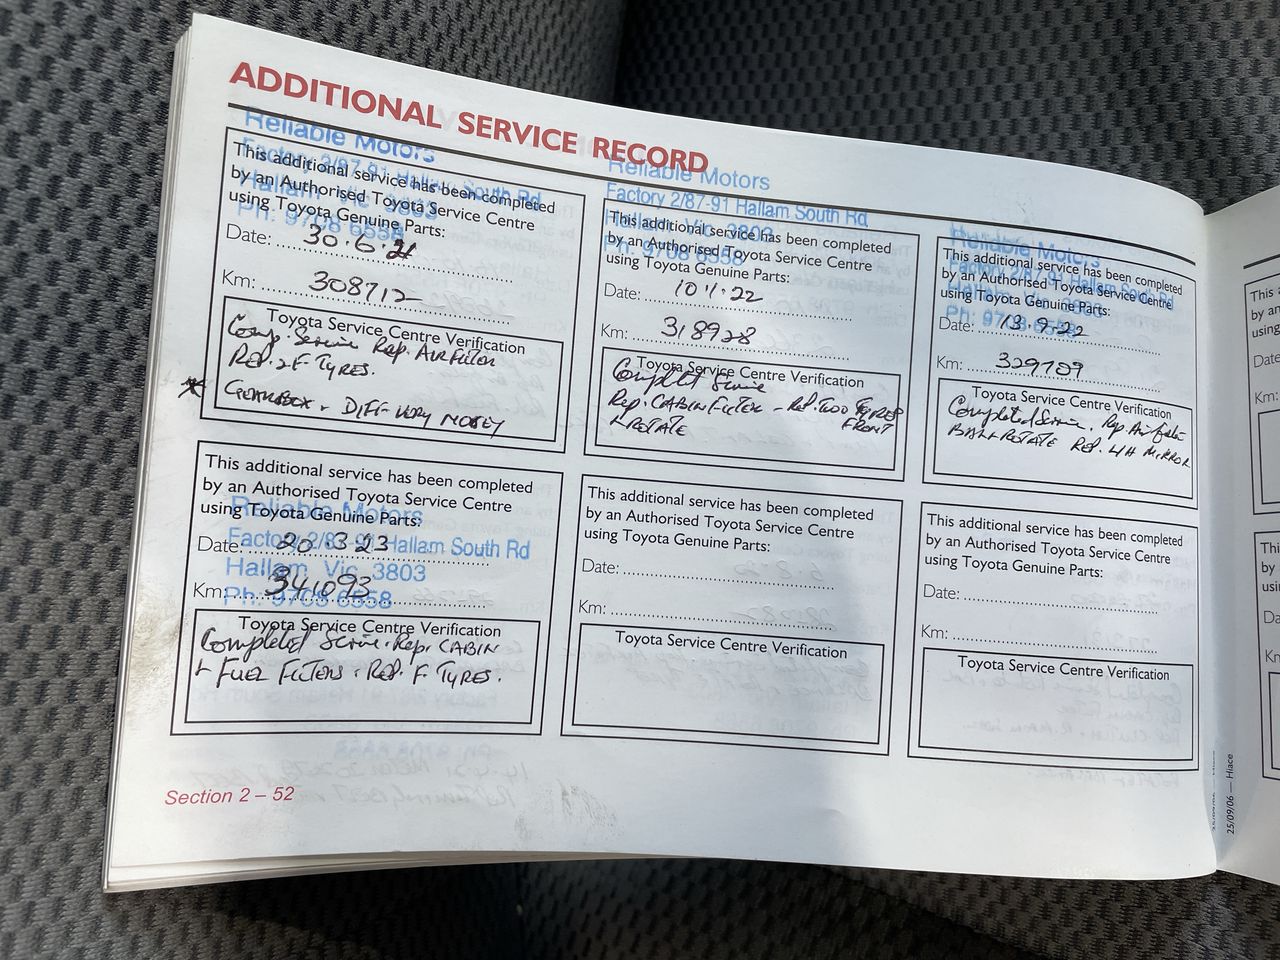 ADDITIONAL SERVICE RECORD
Reliable Motors
Factory 2/87-91 Hallam South Rd
Hallam Vic 3803
Ph: 9708 6558
This additional service has been completed
by an Authorised Toyota Service Centre
using Toyota Genuine Parts:
Date: 30.6.21
Km: 308712
Toyota Service Centre Verification
Comp. Service Rep. AIR FILTER
REP. 2 F. TYRES.
* GEARBOX + DIFF VERY NOISEY
Reliable Motors
Factory 2/87-91 Hallam South Rd
Hallam Vic 3803
Ph: 9708 6558
This additional service has been completed
by an Authorised Toyota Service Centre
using Toyota Genuine Parts:
Date: 10.1.22
Km: 318928
Toyota Service Centre Verification
Complet Service
Rep. CABIN FILTER - REP. TWO TYRES
FRONT
ROTATE
Reliable Motors
Factory 2/87-91 Hallam South Rd
Hallam Vic 3803
Ph: 9708 6558
This additional service has been completed
by an Authorised Toyota Service Centre
using Toyota Genuine Parts:
Date: 13.9.22
Km: 329709
Toyota Service Centre Verification
Completed Service. Rep. Air filter
ROTATE REP. LH MIRROR
This additional service has been completed
by an Authorised Toyota Service Centre
using Toyota Genuine Parts:
Reliable Motors
Factory 2/87-91 Hallam South Rd
Hallam Vic 3803
Ph: 9708 6558
Date: 20.3.23
Km: 341093
Toyota Service Centre Verification
Completed Service. Rep. CABIN
+ FUEL FILTERS. REP. F. TYRES.
This additional service has been completed
by an Authorised Toyota Service Centre
using Toyota Genuine Parts:
Date:
Km:
Toyota Service Centre Verification
This additional service has been completed
by an Authorised Toyota Service Centre
using Toyota Genuine Parts:
Date:
Km:
Toyota Service Centre Verification
Section 2 – 52
25/09/06 — Hiace